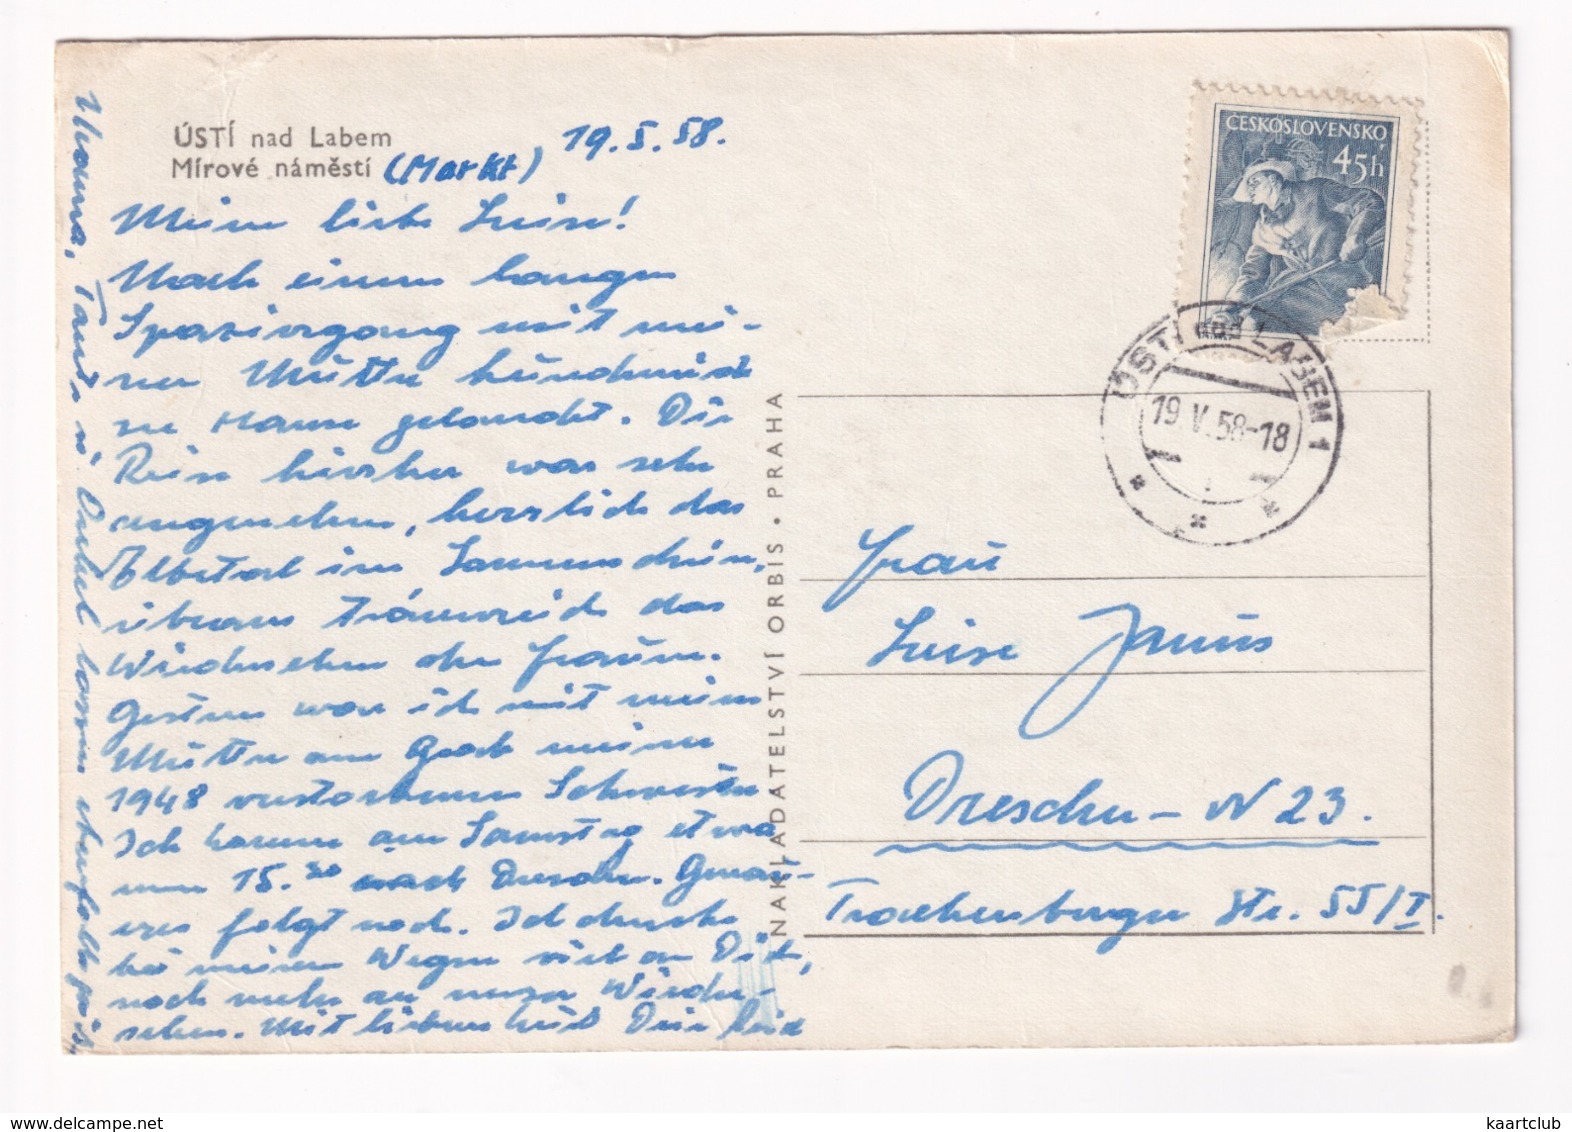 ÚSTÍ nad Labem
Mírové náměstí (Markt) 19.5.58.
Meine liebe Luise!
Nach einem langen
Spaziergang mit mei-
ner Mutter
zu Hause gelandet. Die
Reise hierher war sehr
angenehm, herrlich das
Elbetal im Sonnenschein,
überaus tränenreich das
Wiedersehen der Frauen.
Gestern war ich mit meiner
Mutter am Grab meiner
1948 verstorbenen Schwester.
Ich komme am Samstag etwa
um 15.30 nach Dresden. Genau-
eres folgt noch. Ich denke
bei meinen Wegen viel an Dich,
noch mehr an unser Wieder-
sehen. Mit lieben Dein
Mama, Tante u. Onkel lassen
ČESKOSLOVENSKO
45h
ÚSTÍ nad LABEM 1
19.V.58-18
NAKLADATELSTVÍ ORBIS • PRAHA
Frau
Luise Janus
Dresden - N 23.
Trachenberger Str. 55/I.
kaartclub